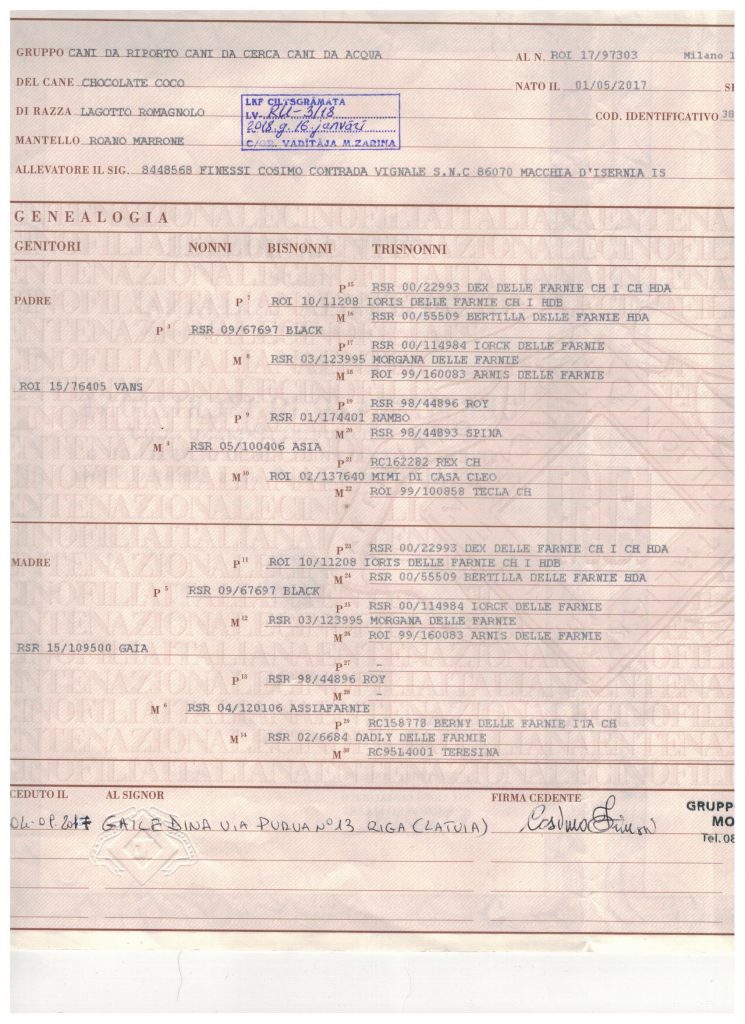 GRUPPO CANI DA RIPORTO CANI DA CERCA CANI DA ACQUA AL N. ROI 17/97303 Milano 1
DEL CANE CHOCOLATE COCO NATO IL 01/05/2017
DI RAZZA LAGOTTO ROMAGNOLO COD. IDENTIFICATIVO 38
LKF CILTSGRĀMATA
LV- RU-3/18
2018.g. 16. janvārī
C/GR. VADĪTĀJA M.ZARIŅA
MANTELLO ROANO MARRONE
ALLEVATORE IL SIG. 8448568 FINESSI COSIMO CONTRADA VIGNALE S.N.C 86070 MACCHIA D'ISERNIA IS
GENEALOGIA
GENITORI NONNI BISNONNI TRISNONNI
P15 RSR 00/22993 DEX DELLE FARNIE CH I CH HDA
PADRE P7 ROI 10/11208 IORIS DELLE FARNIE CH I HDB
M16 RSR 00/55509 BERTILLA DELLE FARNIE HDA
P3 RSR 09/67697 BLACK
P17 RSR 00/114984 IORCK DELLE FARNIE
M8 RSR 03/123995 MORGANA DELLE FARNIE
M18 ROI 99/160083 ARNIS DELLE FARNIE
ROI 15/76405 VANS
P19 RSR 98/44896 ROY
P9 RSR 01/174401 RAMBO
M20 RSR 98/44893 SPINA
M4 RSR 05/100406 ASIA
P21 RC162282 REX CH
M10 ROI 02/137640 MIMI DI CASA CLEO
M22 ROI 99/100858 TECLA CH
P23 RSR 00/22993 DEX DELLE FARNIE CH I CH HDA
MADRE P11 ROI 10/11208 IORIS DELLE FARNIE CH I HDB
M24 RSR 00/55509 BERTILLA DELLE FARNIE HDA
P5 RSR 09/67697 BLACK
P25 RSR 00/114984 IORCK DELLE FARNIE
M12 RSR 03/123995 MORGANA DELLE FARNIE
M26 ROI 99/160083 ARNIS DELLE FARNIE
RSR 15/109500 GAIA
P27 -
P13 RSR 98/44896 ROY
M28 -
M6 RSR 04/120106 ASSIAFARNIE
P29 RC158778 BERNY DELLE FARNIE ITA CH
M14 RSR 02/6684 DADLY DELLE FARNIE
M30 RC95L4001 TERESINA
CEDUTO IL AL SIGNOR FIRMA CEDENTE GRUPP
MO
Tel.08
04-09.2017 GAILE DINA VIA PURVA N°13 RIGA (LATVIA) Cosimo